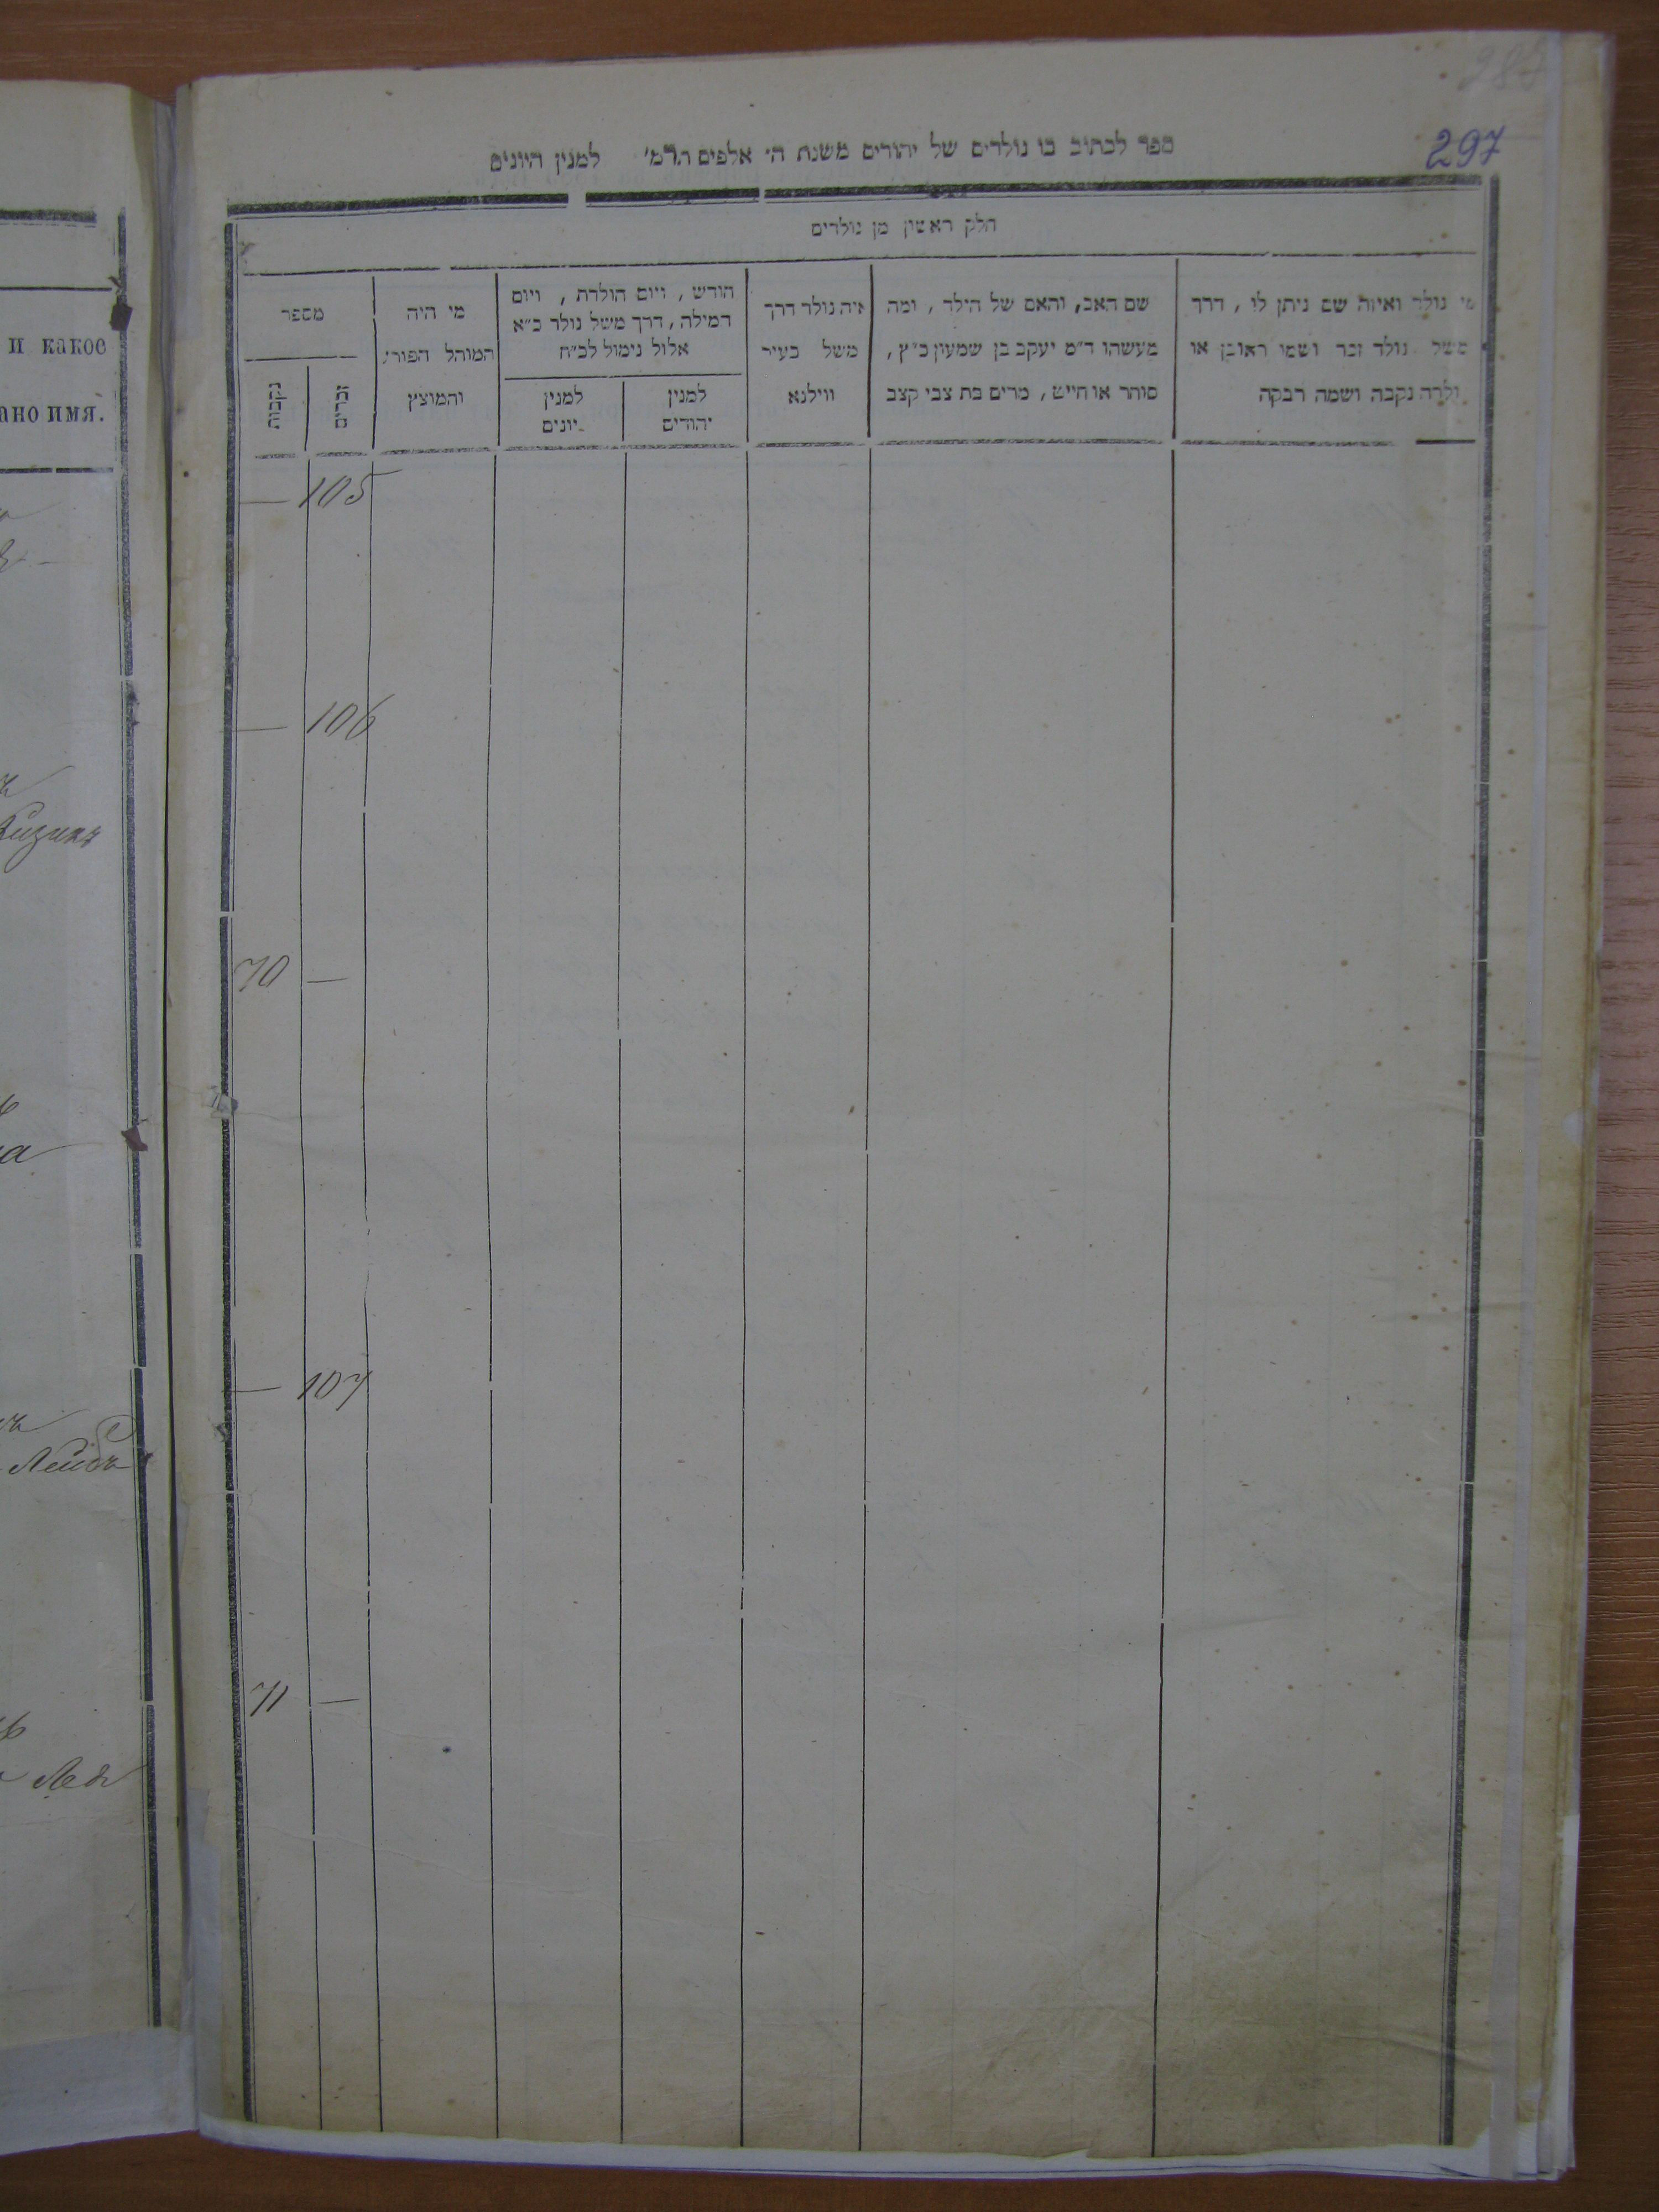 и какое
ано имя.
Лейбъ
297
ספר לכתוב בו נולדים של יהודים משנת ה׳ אלפים תרמ׳ למנין היונים
חלק ראשון מן נולדים
מי נולד ואיזה שם ניתן לו, דרך
משל נולד זכר ושמו ראובן או
נולדה נקבה ושמה רבקה
שם האב, והאם של הילד, ומה
מעשהו ד״מ יעקב בן שמעון כ״ץ,
סוחר או חייט, מרים בת צבי קצב
איה נולד דרך
משל בעיר
ווילנא
חודש, ויום הולדת, ויום
המילה, דרך משל נולד כ״א
אלול נימול לכ״ח
למנין
יהודים
למנין
יונים
מי היה
המוהל הפורע
והמוצץ
מספר
זכרים
נקבות
— 105
— 106
70 —
— 107
71 —